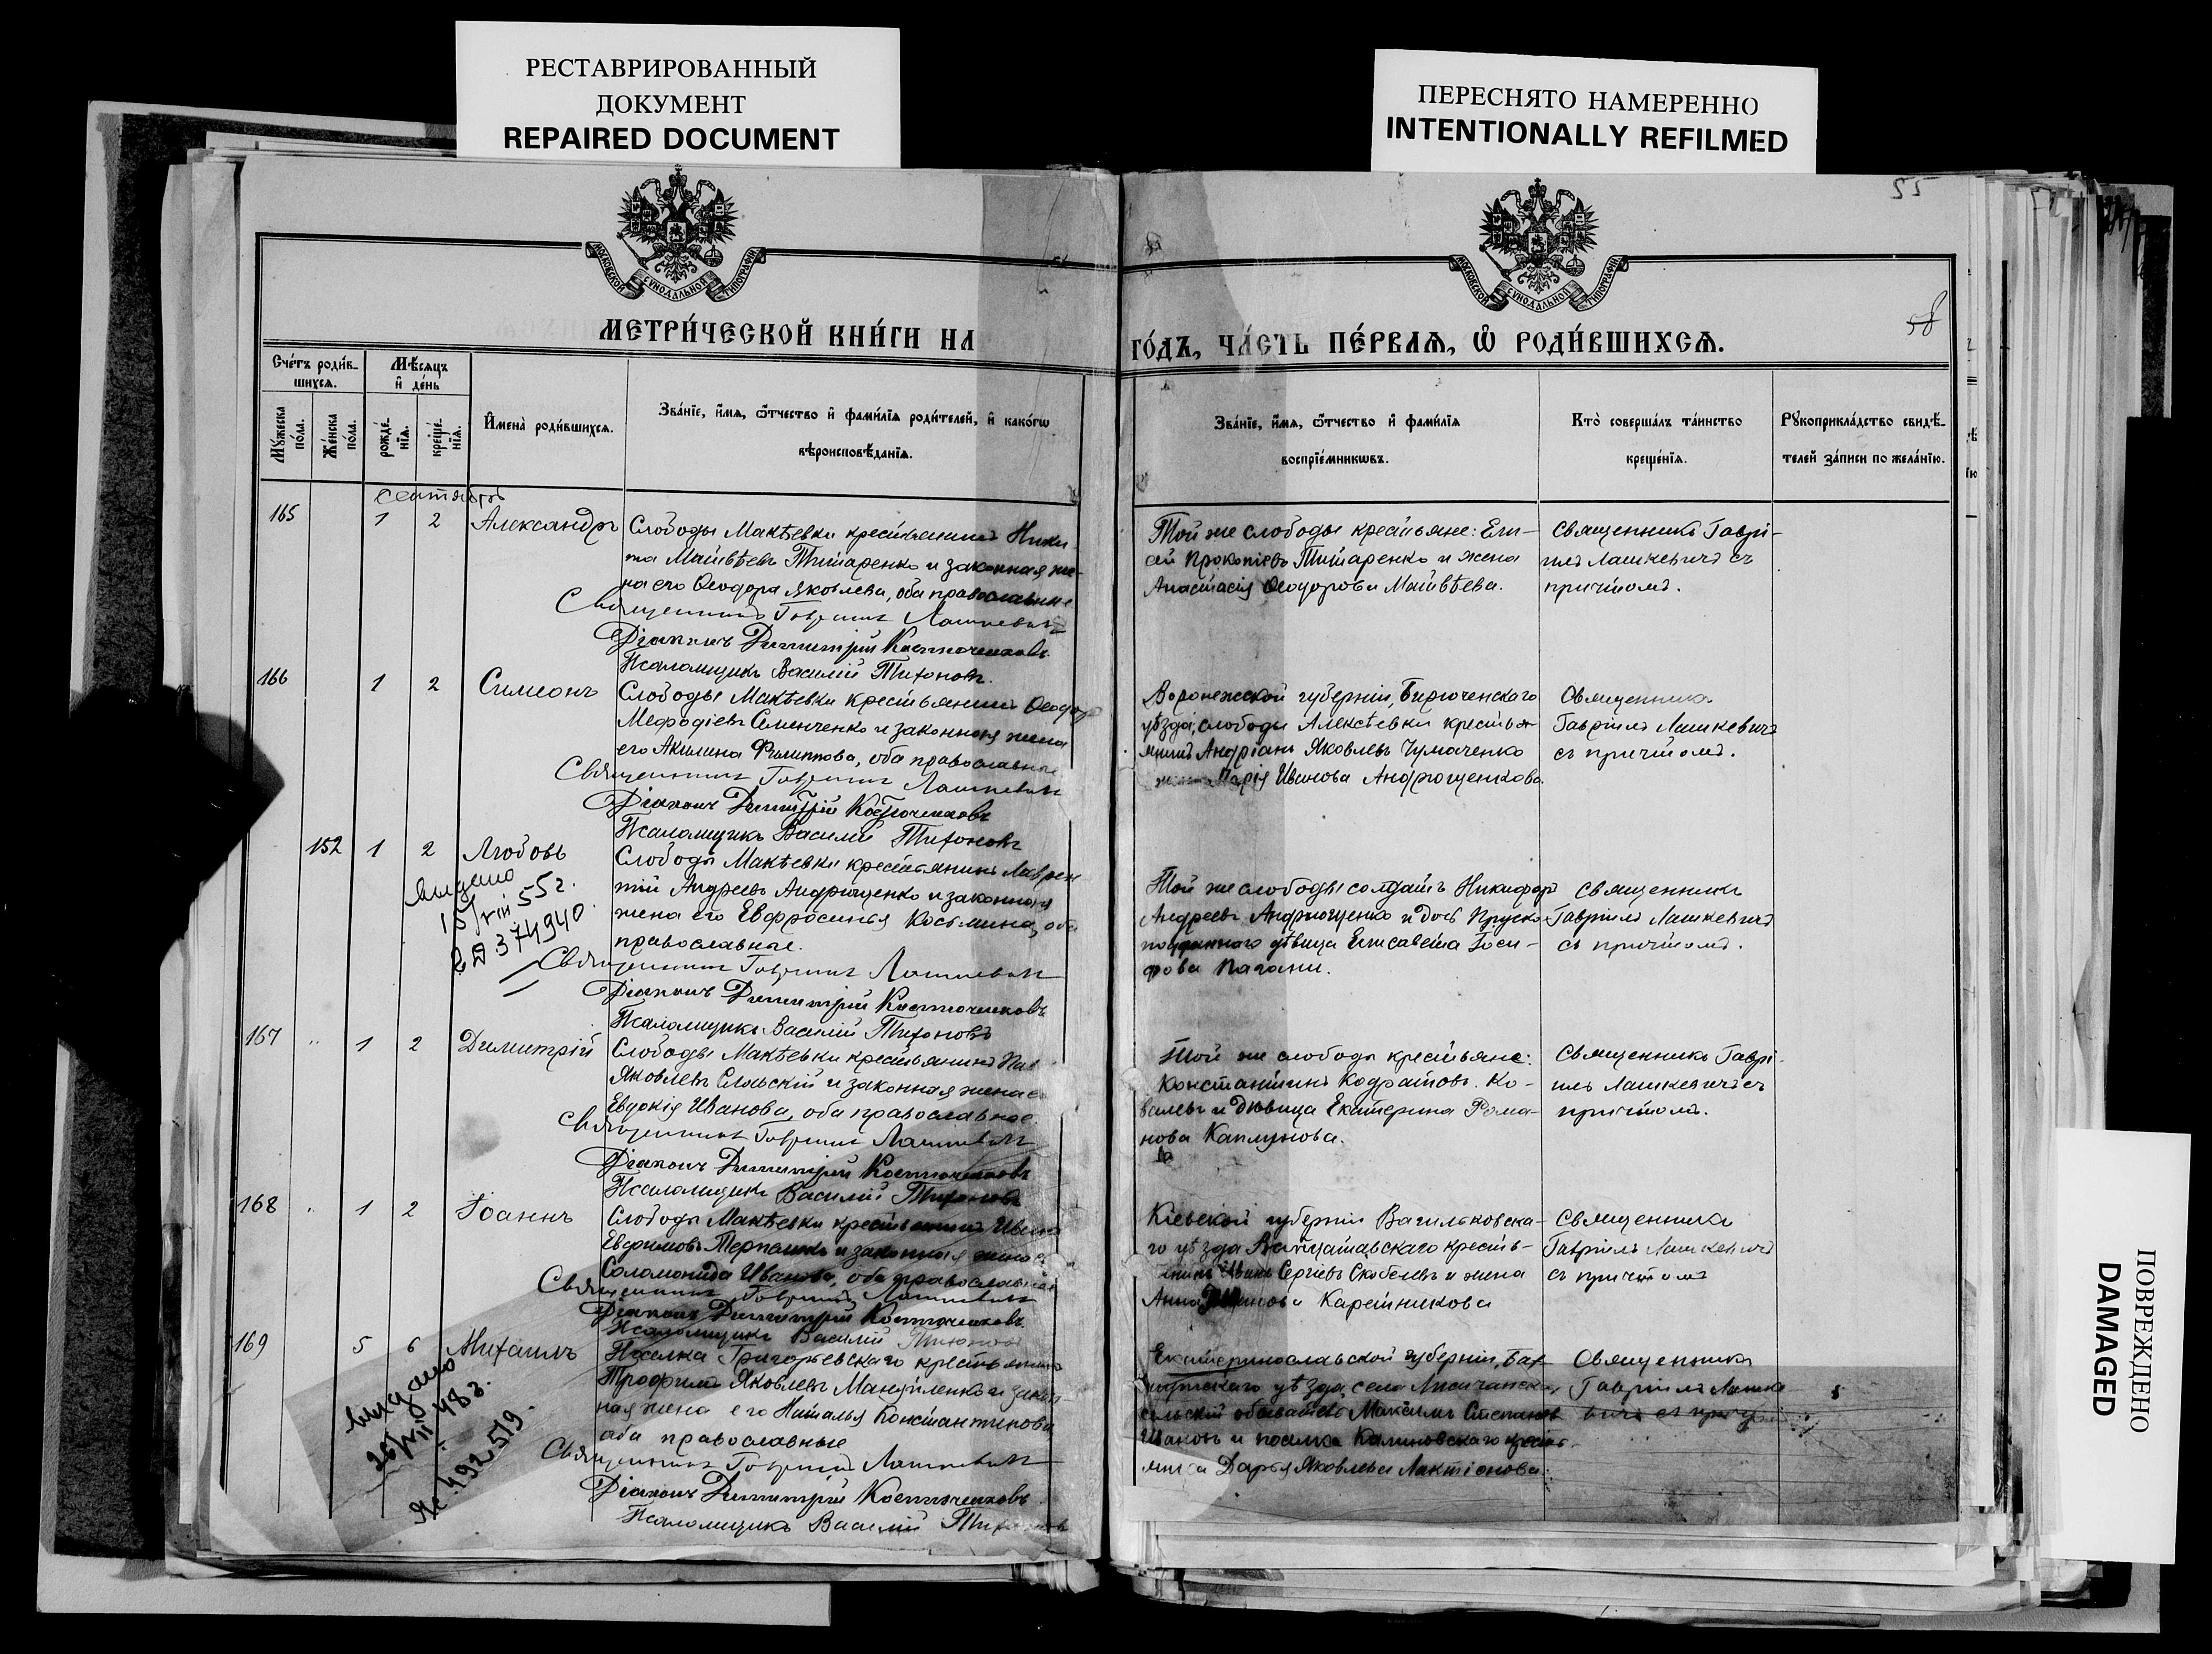 РЕСТАВРИРОВАННЫЙ
ДОКУМЕНТ
REPAIRED DOCUMENT
ПЕРЕСНЯТО НАМЕРЕННО
INTENTIONALLY REFILMED
55
58
МОСКОВСКОЙ СѴНОДАЛЬНОЙ ТИПОГРАФІИ
МОСКОВСКОЙ СѴНОДАЛЬНОЙ ТИПОГРАФІИ
МЕТРИ́ЧЕСКОЙ КНИ́ГИ НА
ГО́ДЪ, ЧА́СТЬ ПЕ́РВАѦ, Ѽ РОДИ́ВШИХСѦ.
Сче́тъ роди́в-
шихсѧ.
Мѣ́сѧцъ
и҆ де́нь
Мꙋжеска
по́ла.
Же́нска
по́ла.
рожде́-
нїѧ.
креще́-
нїѧ.
И҆мена̀ роди́вшихсѧ.
Зва́нїе, и҆́мѧ, ѻ҆́тчество и҆ фами́лїѧ роди́телей, и҆ како́гѡ
вѣроисповѣ́данїѧ.
Зва́нїе, и҆́мѧ, ѻ҆́тчество и҆ фами́лїѧ
воспрїе́мникѡвъ.
Кто̀ соверша́лъ та́инство
креще́нїѧ.
Рꙋкоприкла́дство свидѣ́-
телей за́писи по жела́нїю.
сентябрь
165 1 2 Александръ
Слободы Макѣевки крестьянинъ Ники-
та Матвѣевъ Титаренко и законная же-
на его Ѳеодора Яковлева, оба православные
Священникъ Гавріилъ Лашкевичъ
Діаконъ Димитрій Костюченковъ
Псаломщикъ Василій Тихоновъ.
Той же слободы крестьяне: Ели-
сей Прокопіевъ Титаренко и жена
Анастасія Ѳеодорова Матвѣева.
Священникъ Гаврі-
илъ Лашкевичъ съ
причтомъ.
166 1 2 Симеонъ
Слободы Макѣевки крестьянинъ Ѳеодоръ
Мефодіевъ Семенченко и законная жена
его Акилина Филиппова, оба православные
Священникъ Гавріилъ Лашкевичъ
Діаконъ Димитрій Костюченковъ
Псаломщикъ Василій Тихоновъ
Воронежской губерніи, Бирюченскаго
уѣзда, слободы Алексѣевки крестья-
нинъ Андріанъ Яковлевъ Чумаченко
Марія Иванова Андрющенкова.
Священникъ
Гавріилъ Лашкевичъ
съ причтомъ.
152 1 2 Любовь
Выдано
374940
Слободы Макѣевки крестьянинъ Лаврен
тій Андреевъ Андрющенко и законная
жена его Евфросинья Косьмина, оба
православные.
Священникъ Гавріилъ Лашкевичъ
Діаконъ Димитрій Костюченковъ
Псаломщикъ Василій Тихоновъ
Той же слободы солдатъ Никифоръ
Андреевъ Андрющенко и дочь Прусско-
подданнаго дѣвица Елисавета Іоси-
фова
Священникъ
Гавріилъ Лашкевичъ
съ причтомъ.
167 1 2 Димитрій
Слободы Макѣевки крестьянинъ
Яковлевъ и законная жена
Евдокія Иванова, оба православные.
Священникъ Гавріилъ Лашкевичъ
Діаконъ Димитрій Костюченковъ
Псаломщикъ Василій Тихоновъ
Той же слободы крестьяне:
Константинъ Кодратовъ Ко-
валевъ и дѣвица Екатерина Рома-
нова Каплунова.
Священникъ Гаврі-
илъ Лашкевичъ съ
причтомъ.
168 1 2 Іоаннъ
Слободы Макѣевки крестьянинъ Иванъ
Евфимовъ и законная жена
Соломонида Иванова, оба православные
Священникъ Гавріилъ Лашкевичъ
Діаконъ Димитрій Костюченковъ
Псаломщикъ Василій Тихоновъ
Кіевской губерніи Васильковска-
го уѣзда кресть-
Сергіевъ Скобелевъ и жена
Анна Каретникова
Священникъ
Гавріилъ Лашкевичъ
съ причтомъ
169 5 6 Михаилъ
Выдано
492519.
Поселка Григорьевскаго крестьянинъ
Трофимъ Яковлевъ Мануйленко и закон
ная жена его Наталья Константинова
оба православные
Священникъ Гавріилъ Лашкевичъ
Діаконъ Димитрій Костюченковъ
Псаломщикъ Василій Тихоновъ
Екатеринославской губерніи, Бах-
мутскаго уѣзда, села Лисичанска,
сельскій обыватель Максимъ Степановъ
Ивановъ и поселка Калиновскаго
Дарья Яковлева Лактіонова.
Священникъ
Гавріилъ Лашке-
вичъ съ
ПОВРЕЖДЕНО
DAMAGED